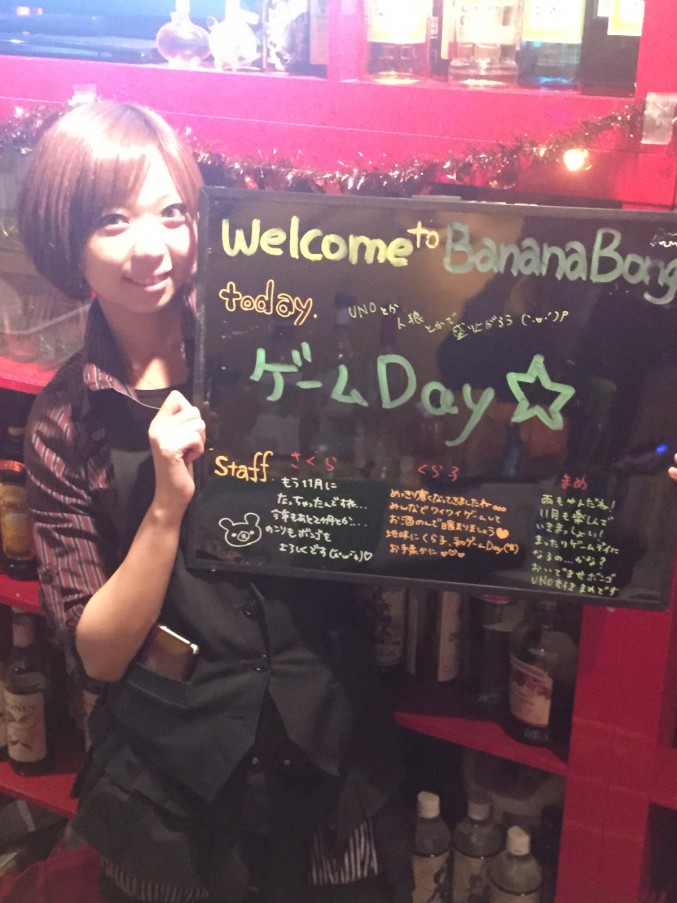 Welcome to BananaBong
today.
UNOとか
人狼とかで
盛上がろう(´・ω・`)?
ゲームDay☆
Staff
さくら
もう11月に
なっちゃったんですね…
今年もあと2ヶ月とか…
のこりもボンゴを
よろしくどうろ(´・ω・`)♡
くらろ
めっきり寒くなってきましたね…
みんなでワイワイゲームして
お酒のんで暖まりましょう♡
地味にくらろ、初ゲームDay(*)
お手柔かに♡♡♡
まめ
雨もやんだね!
11月も楽しんで
いきましょい!
まったりゲームデイに
なるの…かな?
おいでませボンゴ
まめです